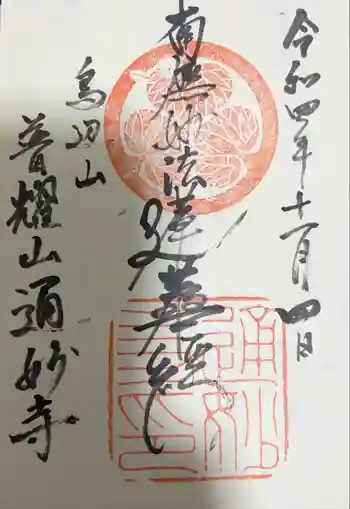 令和四年十一月四日
南無妙法蓮華経
鳥辺山
普耀山通妙寺
通妙